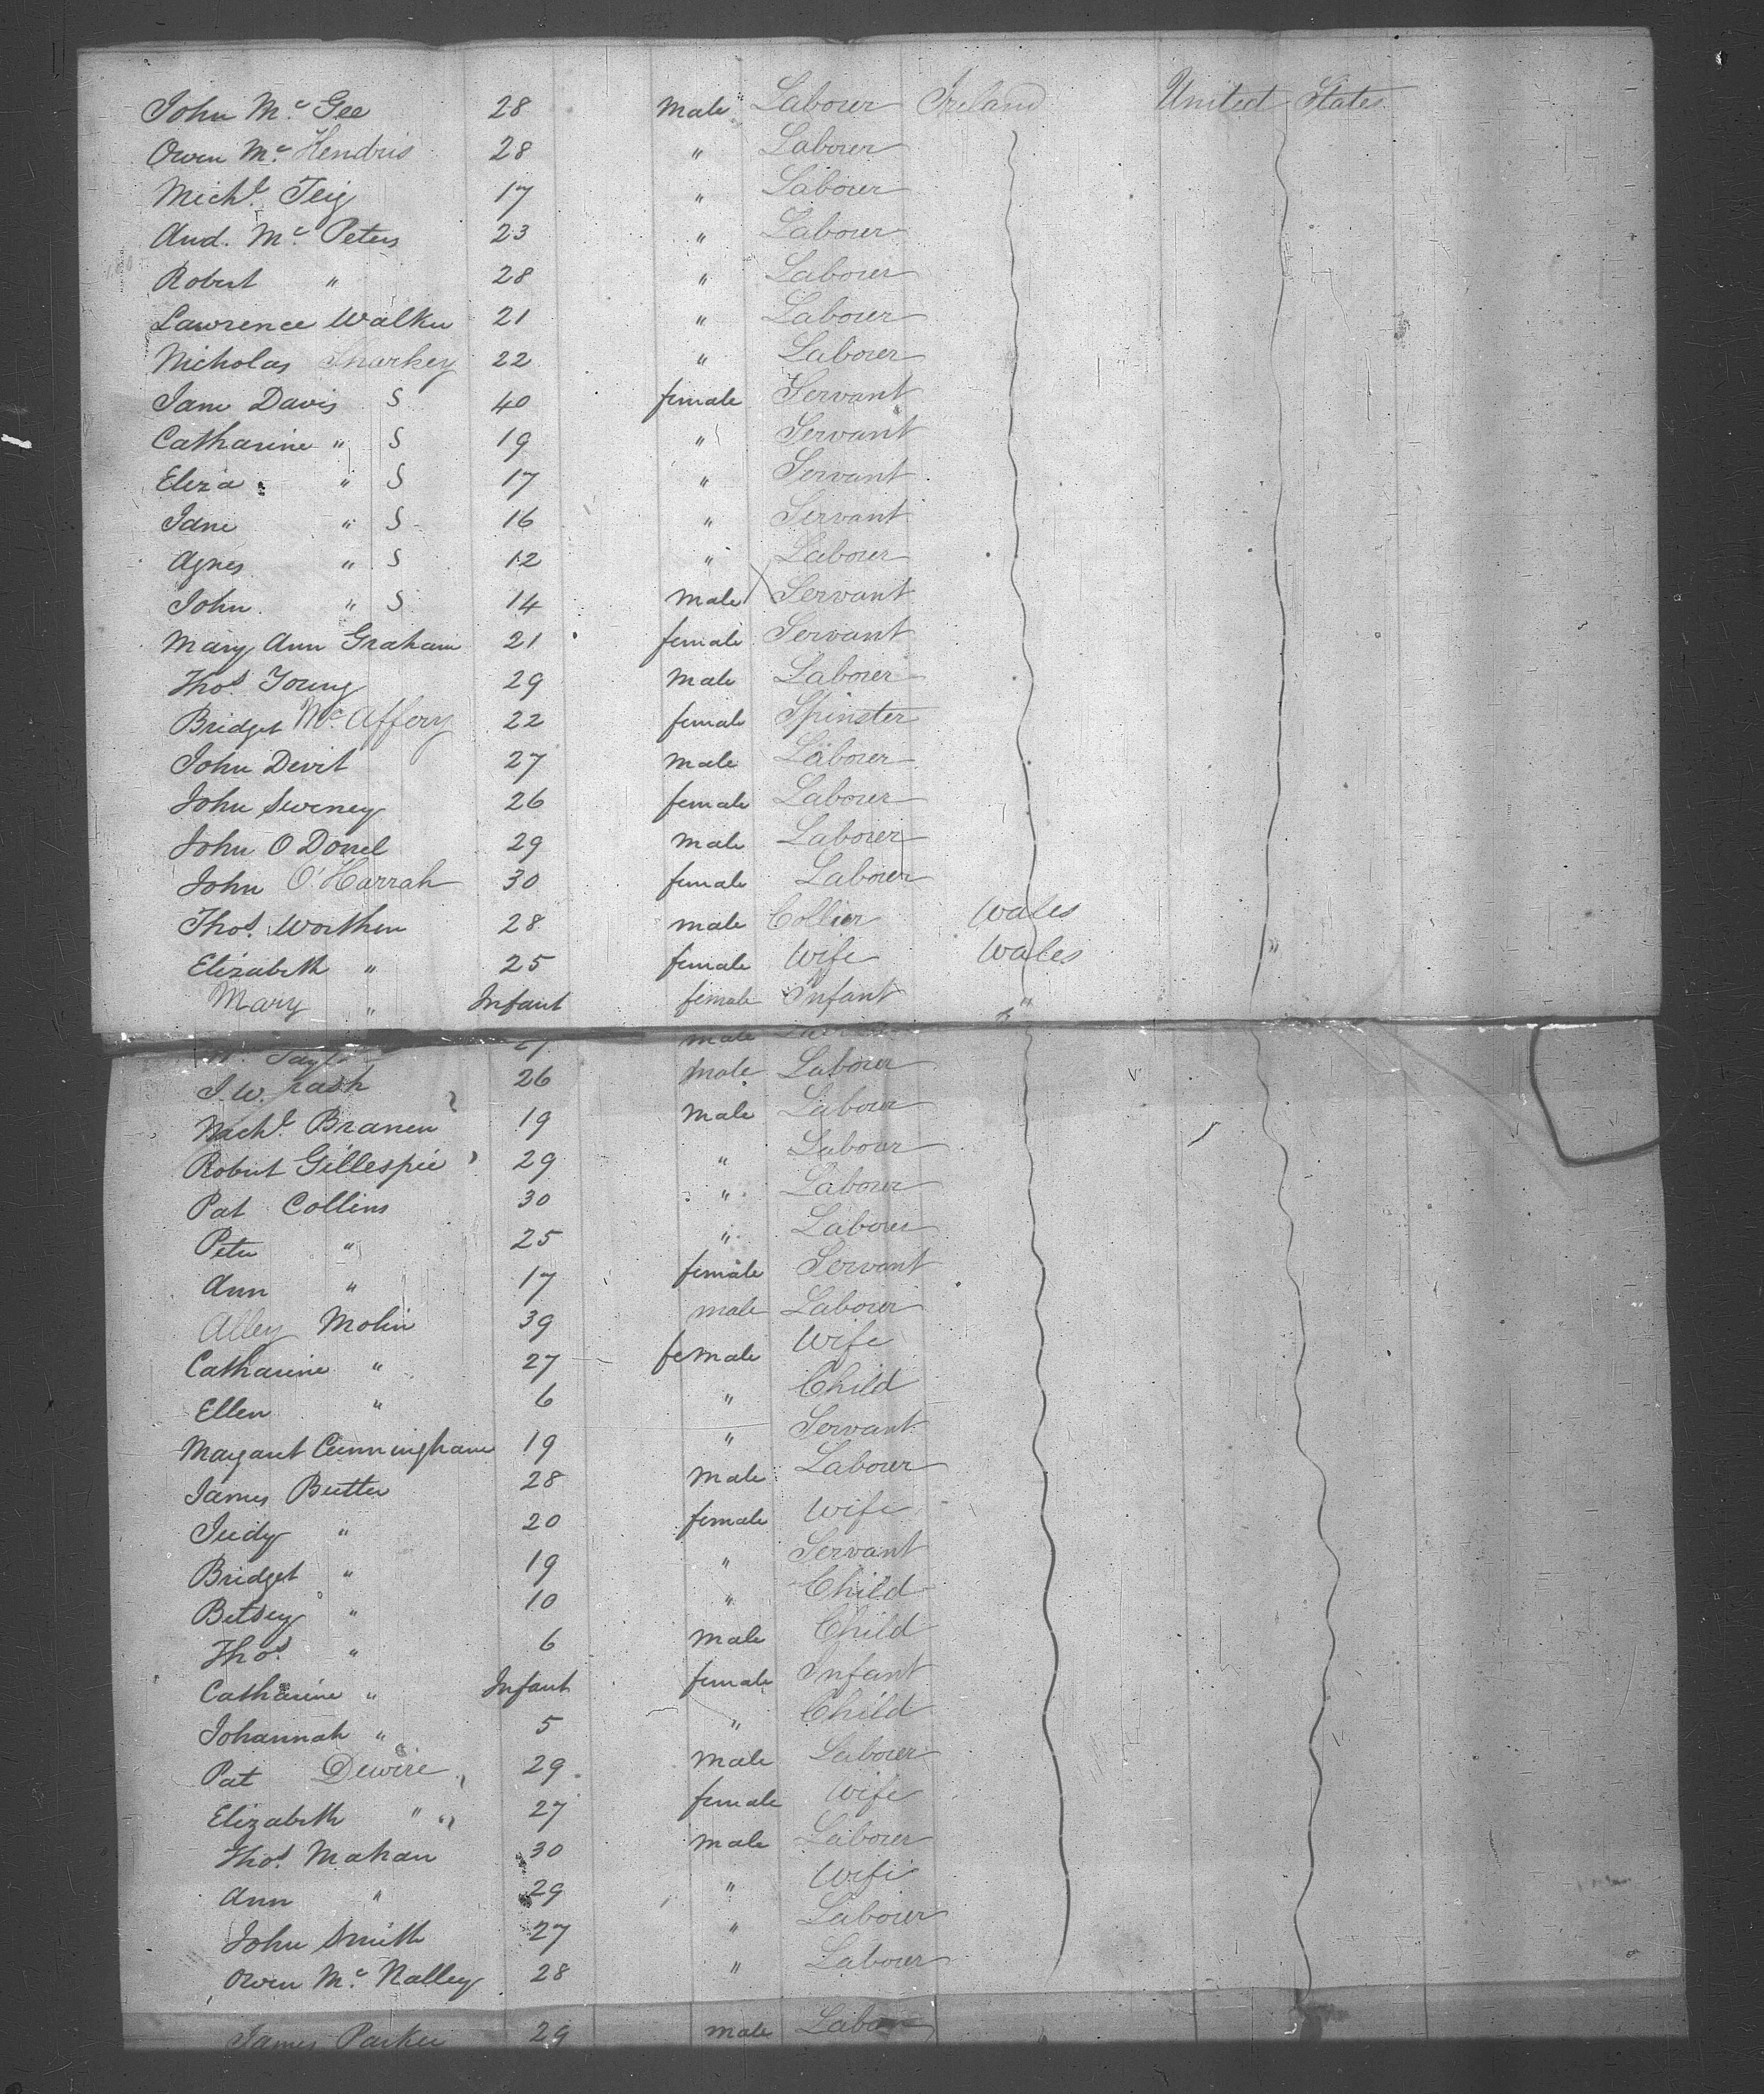 John Mc Gee 28 Male Labourer Ireland United States
Owen Mc Hendris 28 " Labourer
Michl. Teig 17 " Labourer
And. Mc Peters 23 " Labourer
Robert " 28 " Labourer
Lawrence Walker 21 " Labourer
Nicholas Sharkey 22 " Labourer
Jane Davis S 40 female Servant
Catharine " S 19 " Servant
Eliza " S 17 " Servant
Jane " S 16 " Servant
Agnes " S 12 " Labourer
John " S 14 Male Servant
Mary Ann Graham 21 female Servant
Thos. Young 29 Male Labourer
Bridget Mc Affery 22 female Spinster
John Devit 27 Male Labourer
John Swiney 26 female Labourer
John O Donel 29 Male Labourer
John O'Harrah 30 female Labourer
Thos. Worthen 28 male Collier Wales
Elizabeth " 25 female Wife Wales "
Mary " Infant female Infant "
27 male
J. W. 26 Male Labourer
Michl. Branen 19 Male Labour
Robert Gillespie 29 " Labour
Pat Collins 30 " Labourer
Peter " 25 " Labourer
Ann " 17 female Servant
Alley Molin 39 male Labourer
Catharine " 27 female Wife
Ellen " 6 " Child
Margaret Cunningham 19 " Servant
James Butler 28 Male Labourer
Judy " 20 female Wife
Bridget " 19 " Servant
Betsey " 10 " Child
Thos. " 6 Male Child
Catharine " Infant female Infant
Johannah " 5 " Child
Pat Dewire 29 Male Labourer
Elizabeth " 27 female Wife
Thos. Mahan 30 Male Labourer
Ann " 29 " Wife
John Smith 27 " Labourer
Owen Mc Nalley 28 " Labourer
James Parker 29 Male